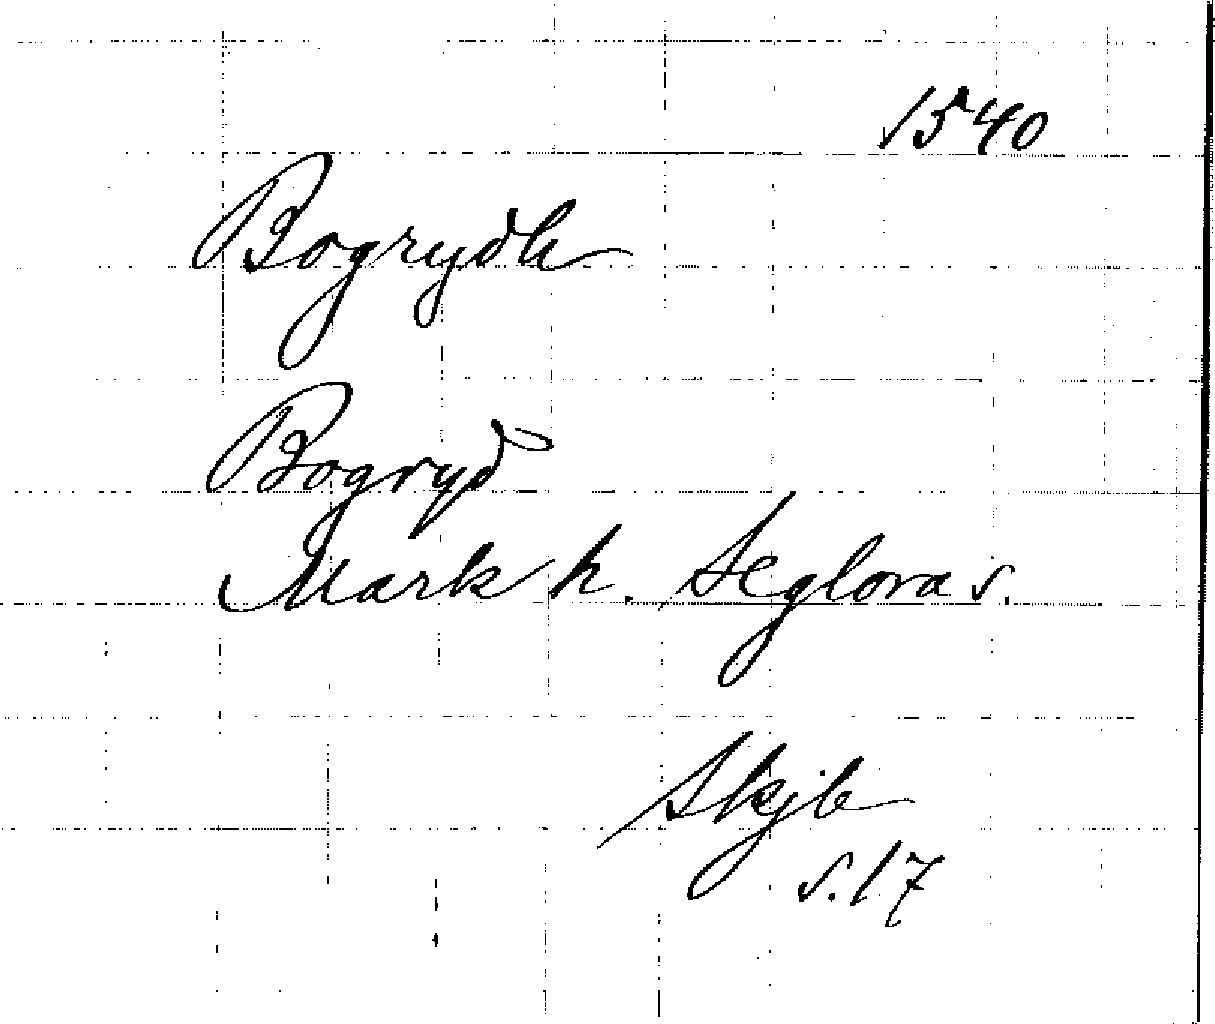 1540
Bogrydh
Bogryd
Mark h. Seglora s.
Skjb
s. 17